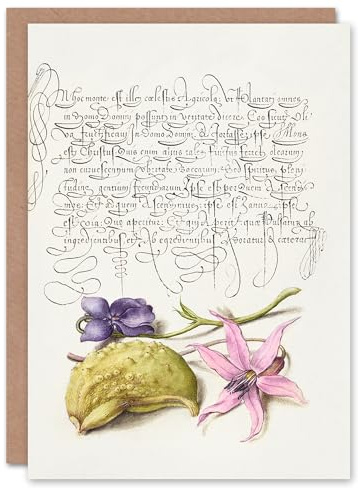 In hoc monte est ille cœlestis Agricola, ut plantari omnes
in Domo Domini possint, in veritate dicere: Ego sicut Oli
va fructificavi in Domo Domini, & fortasse ipse Mons
est Christus. Quis enim alius tales fructus ferret olearum
non curvescentium ubertate baccarum, sed spiritus pleni
tudine gentium fœcundarum? Ipse est per quem ascendi
mus: Et ad quem ascendimus; ipse est Ianua, ipse
est via, Quæ aperitur, et qui aperit, quæ pulsatur ab
ingredientibus, et ab egredientibus adoratur, & cætera